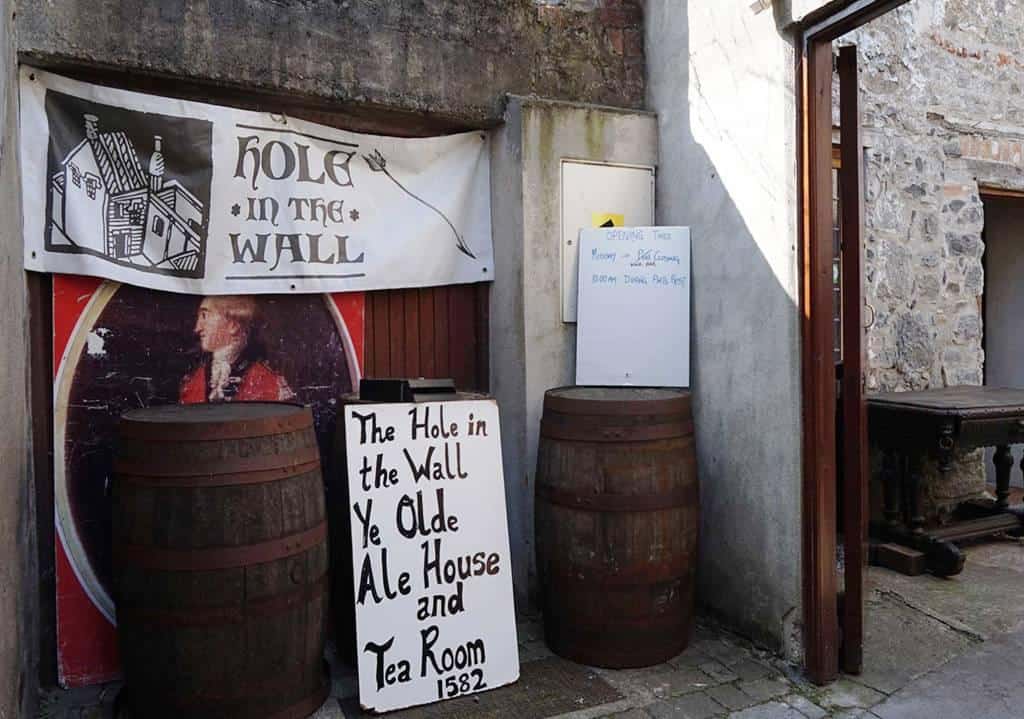 HOLE
IN THE
WALL
OPENING TIMES
MONDAY →
10:00AM DURING
The Hole in
the Wall
Ye Olde
Ale House
and
Tea Room
1582